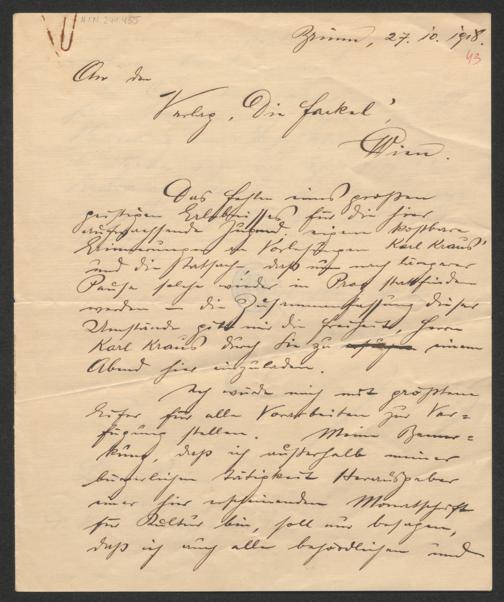 H.I.N. 241.455
Brünn, 27. 10. 1918.
43
An den
Verlag „Die Fackel",
Wien.
Das Fehlen eines großen
geistigen Erlebnisses für die hier
aufwachsende Jugend, eigene kostbare
Erinnerungen an Vorlesungen Karl Kraus'
und die Tatsache, daß nun nach längerer
Pause solche wieder in Prag stattfinden
werden – die Zusammenfassung dieser
Umstände gibt mir die Freiheit, Herrn
Karl Kraus durch Sie zu einem
Abend hier einzuladen.
Ich würde mich mit größtem
Eifer für alle Vorarbeiten zur Ver-
fügung stellen. Meine Bemer-
kung, daß ich außerhalb meiner
bürgerlichen Tätigkeit Herausgeber
einer hier erscheinenden Monatschrift
für Kultur bin, soll nur besagen,
daß ich auch alle behördlichen und